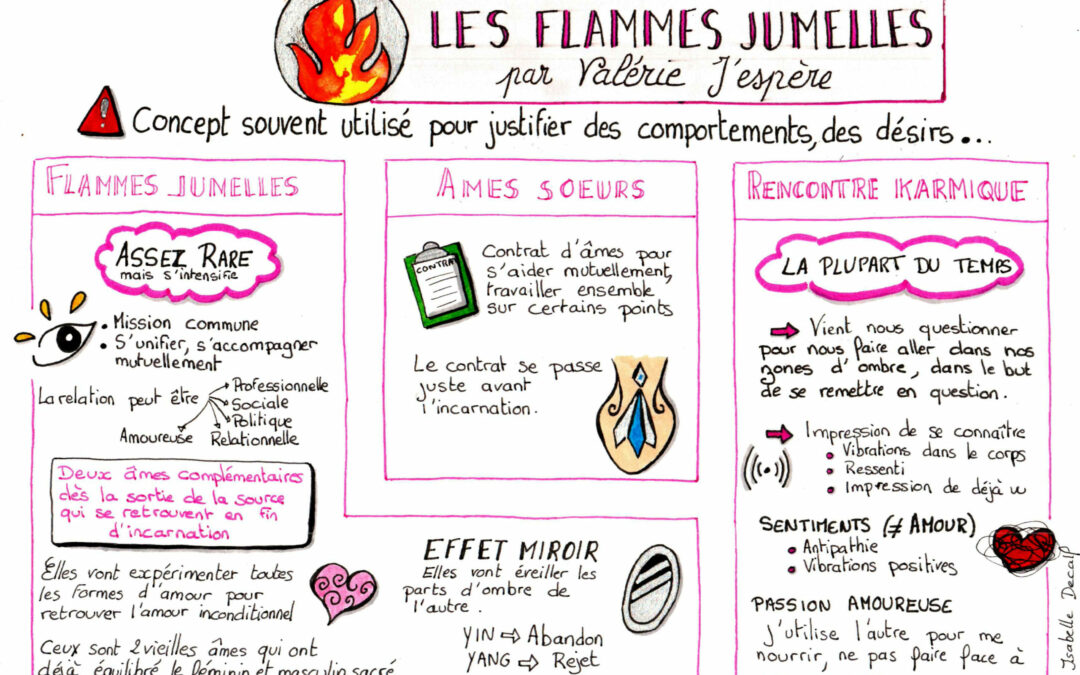 LES FLAMMES JUMELLES
par Valérie J'espère
Concept souvent utilisé pour justifier des comportements, des désirs...
FLAMMES JUMELLES
ASSEZ RARE
mais s'intensifie
• Mission commune
• S'unifier, s'accompagner
mutuellement
La relation peut être
Professionnelle
Sociale
Politique
Relationnelle
Amoureuse
Deux âmes complémentaires
dès la sortie de la source
qui se retrouvent en fin
d'incarnation
Elles vont expérimenter toutes
les formes d'amour pour
retrouver l'amour inconditionnel
Ceux sont 2 vieilles âmes qui ont
déjà équilibré le féminin et masculin sacré
AMES SOEURS
CONTRAT
Contrat d'âmes pour
s'aider mutuellement,
travailler ensemble
sur certains points
Le contrat se passe
juste avant
l'incarnation.
EFFET MIROIR
Elles vont éveiller les
parts d'ombre de
l'autre.
YIN ⇨ Abandon
YANG ⇨ Rejet
RENCONTRE KARMIQUE
LA PLUPART DU TEMPS
Vient nous questionner
pour nous faire aller dans nos
zones d'ombre, dans le but
de se remettre en question.
Impression de se connaître
• Vibrations dans le corps
• Ressenti
• Impression de déjà vu
SENTIMENTS (≠ AMOUR)
• Antipathie
• Vibrations positives
PASSION AMOUREUSE
J'utilise l'autre pour me
nourrir, ne pas faire face à
Isabelle Decalf